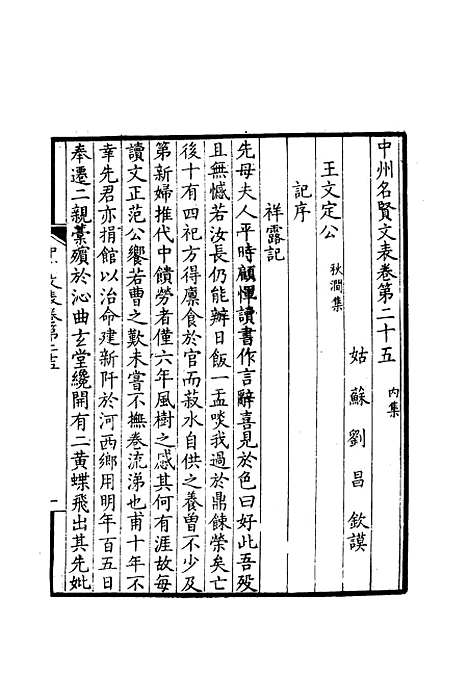 中州名賢文表卷第二十五 内集
姑蘇劉昌欽謨
王文定公 秋澗集
記序
祥露記
先母夫人平時顧惲讀書作言辭喜見於色曰好此吾殁
且無憾若汝長仍能辦日飯一盂啖我過於鼎餗榮矣亡
後十有四祀方得廪食於官而菽水自供之養曽不少及
第新婦推代中饋勞者僅六年風樹之感其何有涯故每
讀文正范公饗若曹之歎未嘗不撫卷流涕也甫十年不
幸先君亦捐館以治命建新阡於河西鄉用明年百五日
奉遷二親藁殯於沁曲玄堂纔開有二黄蝶飛出其先妣
中州文表卷第二十五
一